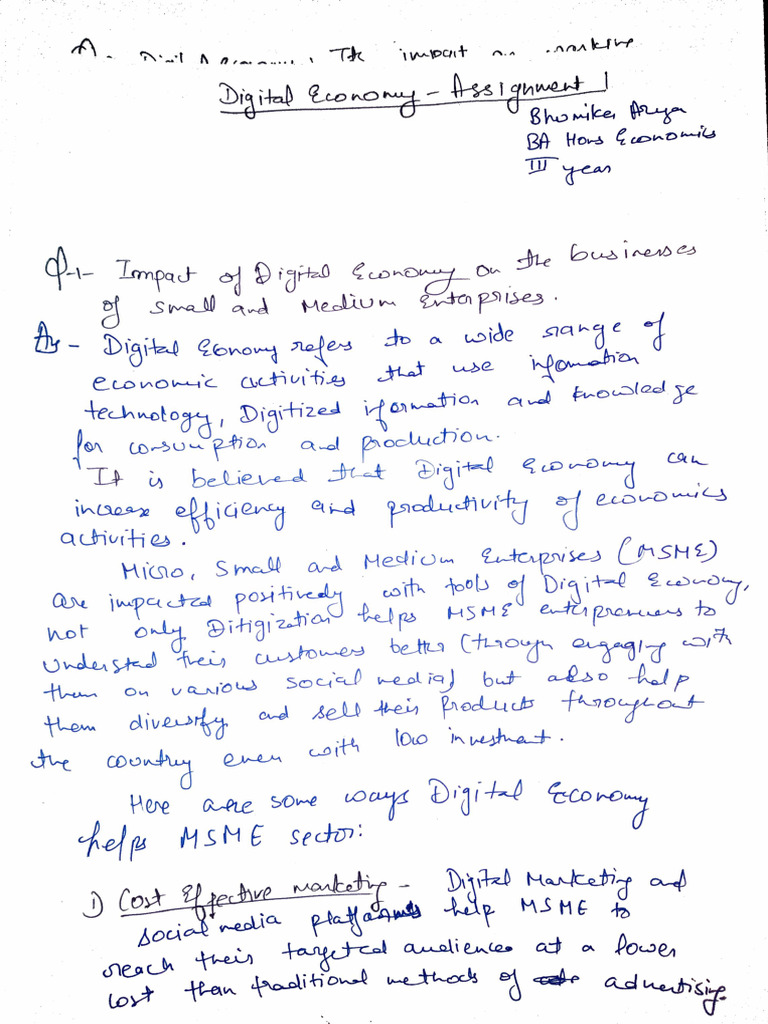 The impact on
Digital Economy - Assignment 1
Bhomika Arya
BA Hons Economics
III year
Q-1- Impact of Digital Economy on the businesses
of small and Medium Enterprises.
Ans - Digital Economy refers to a wide range of
economic activities that use information
technology, Digitized information and knowledge
for consumption and production.
It is believed that Digital Economy can
increase efficiency and productivity of economics
activities.
Micro, Small and Medium Enterprises (MSME)
are impacted positively with tools of Digital Economy,
not only Ditigization helps MSME enterpreneurs to
understad their customers better (through engaging with
them on various social media) but also help
them diversify and sell their Products throughout
the country even with low investment.
Here are some ways Digital Economy
helps MSME sector:
1) Cost Effective marketing - Digital Marketing and
social media platforms help MSME to
reach their targeted audience at a lower
cost than traditional methods of advertising.